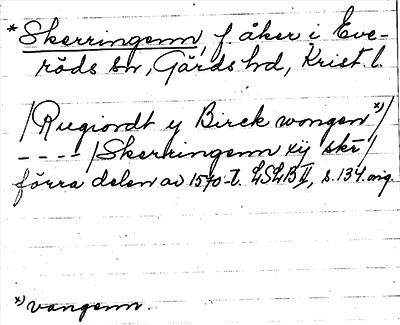 *Skerringenn, f. åker i Eve-
röds sn, Gärds hd, Krist. l.
/Rugiordt y Birck wongen x)/
---- /Skerringenn xij skr/
förra delen av 1570-t. LSLB II, s. 134. orig.
x) vangenn.